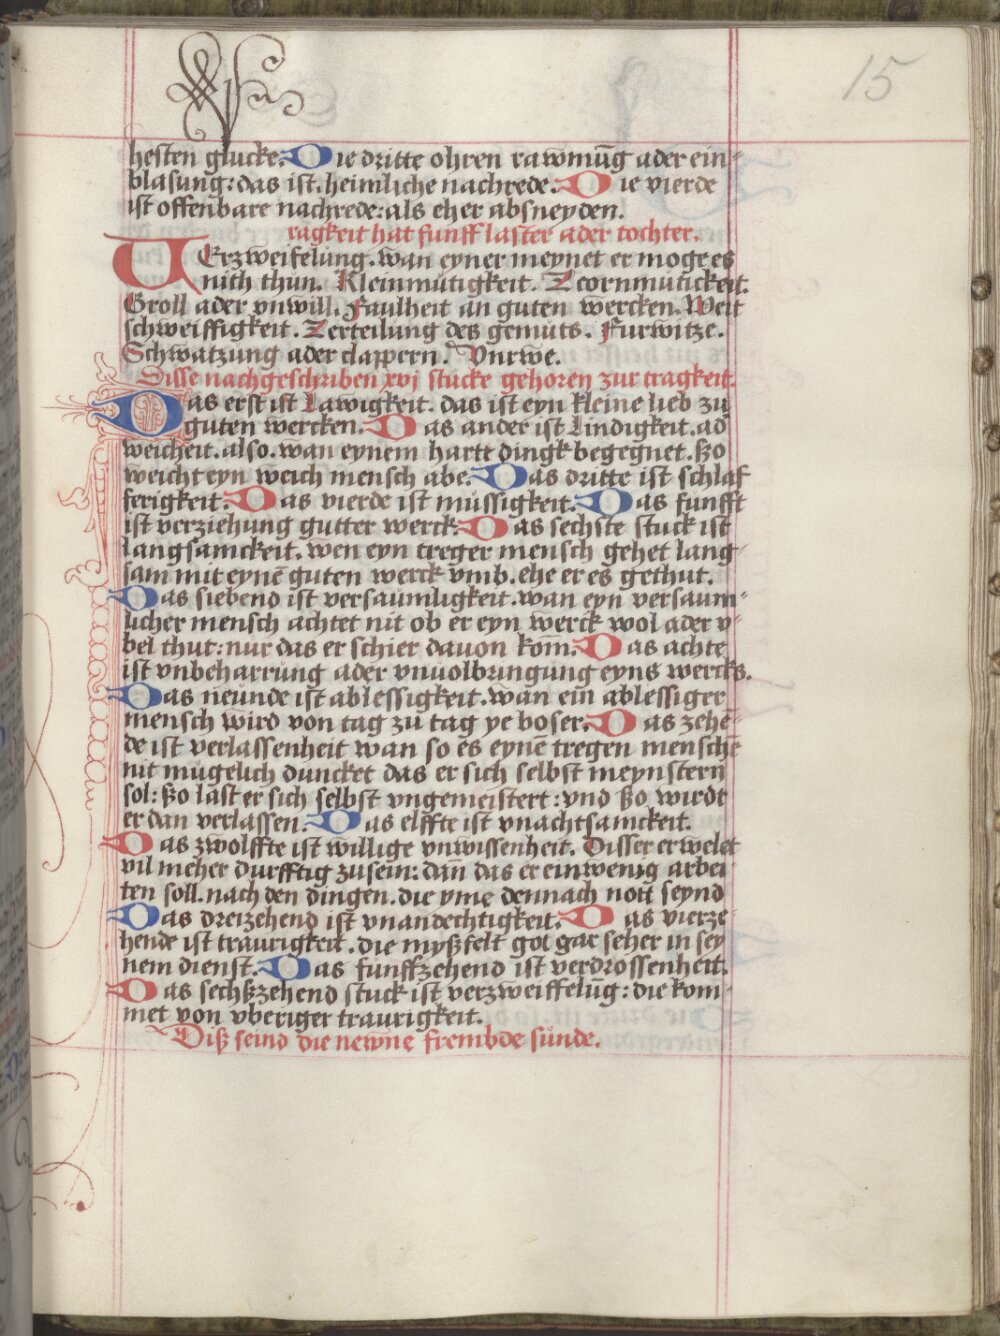 15
hesten glucke. Die dritte ohren rawmūg ader ein-
blasung: das ist. heimliche nachrede. Die vierde
ist offenbare nachrede: als eher absneyden.
ragkeit hat funff laster ader tochter.
VErzweifelung. wan eyner meynet er moge es
nich thun. Kleinmutigkeit. Zcornmutickeit.
Groll ader vnwill. Faulheit an guten wercken. Weit
schweiffigkeit. Zerteilung des gemuts. Furwitze.
Schwatzung ader clappern. Vnrwe.
Disse nachgeschriben xvj stucke gehoren zur tragkeit.
Das erst ist Lawigkeit. das ist eyn kleine lieb zu
guten wercken. Das ander ist Lindigkeit. ad
weicheit. also. wan eynem hartt dingk begegnet. ßo
weicht eyn weich mensch abe. Das dritte ist schlaf
ferigkeit. Das vierde ist mussigkeit. Das funfft
ist verziehung gutter werck. Das sechste stuck ist
langsamckeit. wen eyn treger mensch gehet lang-
sam mit eynē guten werck vmb. ehe er es gethut.
Das siebend ist versaumligkeit. wan eyn versaum-
licher mensch achtet nit ob er eyn werck wol ader v-
bel thut: nur das er schier dauon kom̄. Das achte
ist vnbeharrung ader vnuolbringung eyns wercks.
Das neunde ist ablessigkeit. wan ein ablessiger
mensch wird von tag zu tag ye boser. Das zehē-
de ist verlassenheit wan so es eynē tregen menschē
nit mugelich duncket das er sich selbst meynstern
sol: ßo last er sich selbst vngemeistert: vnd ßo wirdt
er dan verlassen. Das elffte ist vnachtsamckeit.
Das zwolffte ist willige vnwissenheit. Disser erwelet
vil meher durfftig zu sein: dan̄ das er ein wenig arbei
ten soll. nach den dingen. die yme dennach nott seynd
Das dreizehend ist vnandechtigkeit. Das vierze-
hende ist traurigkeit. die myßfelt got gar seher in sey
nem dienst. Das funffzehend ist verdrossenheit.
Das sechßzehend stuck ist verzweiffelūg: die kom-
met von vberiger traurigkeit.
Diß seind die newne frembde sunde.